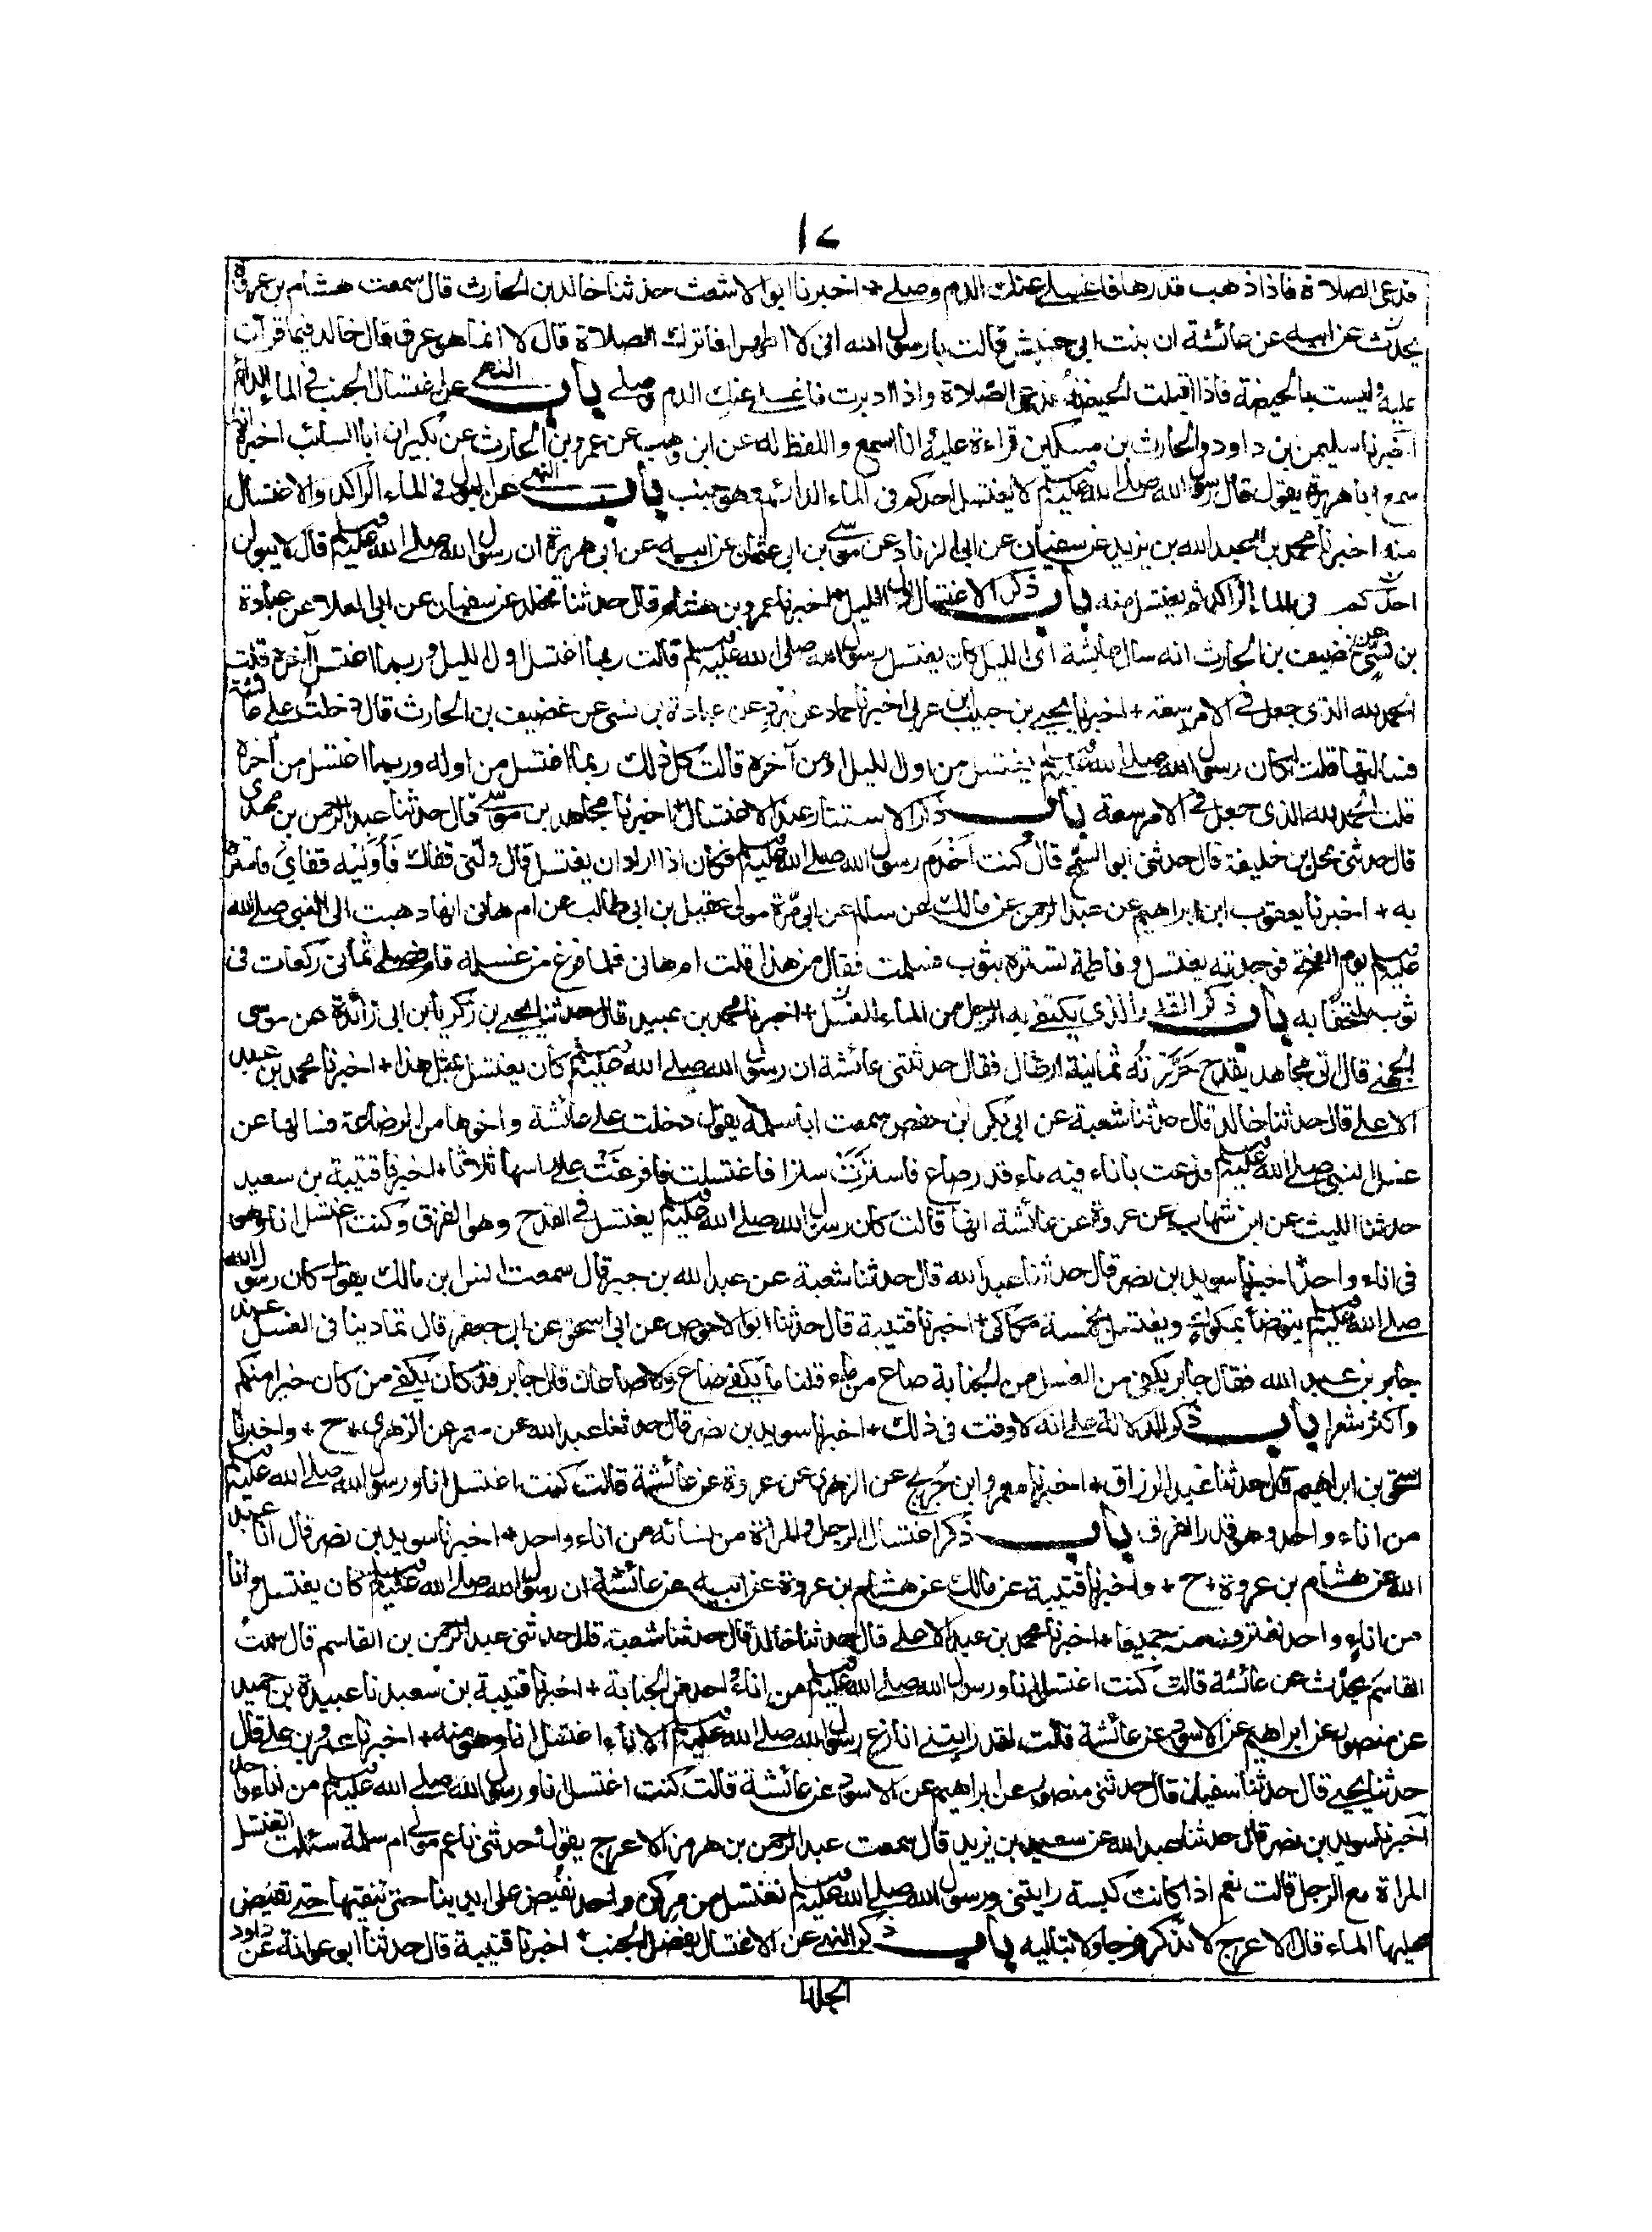 ١٧
فدعى الصلاة فاذا ذهب قدرها فاغسلى عنك الدم وصلے + اخبرنا ابو الاشعث حدثنا خالد بن الحارث قال سمعت هشام بن عروة
يحدث عن ابيه عن عائشة ان بنت ابى حبيش قالت يا رسول الله انى لا اطهر افاترك الصلاة قال لا انما هو عرق قال خالد فيما قرات
عليه وليست بالحيضة فاذا اقبلت الحيضة فدعى الصلاة واذا ادبرت فاغسلى عنك الدم وصلے باب النهى عن اغتسال الجنب فى الماء الدائم
اخبرنا سليمن بن داود والحارث بن مسكين قراءة عليه وانا اسمع واللفظ له عن ابن وهب عن عمرو بن الحارث عن بكير ان ابا السائب اخبره انه
سمع ابا هريرة يقول قال رسول الله صلے الله عليه وسلم لا يغتسل احدكم فى الماء الدائم وهو جنب باب النهى عن البول فى الماء الراكد والاغتسال
منه اخبرنا محمد بن عبد الله بن يزيد عن سفيان عن ابى الزناد عن موسى بن ابى عثمان عن ابيه عن ابى هريرة ان رسول الله صلے الله عليه وسلم قال لا يبولن
احدكم فى الماء الراكد ثم يغتسل منه باب ذكر الاغتسال اول الليل اخبرنا عمرو بن هشام قال حدثنا مخلد عن سفيان عن ابى العلاء عن عبادة
بن نسى عن غضيف بن الحارث انه سال عائشة اى الليل كان يغتسل رسول الله صلى الله عليه وسلم قالت ربما اغتسل اول الليل وربما اغتسل آخره قلت
الحمد لله الذى جعل فى الامر سعة + اخبرنا يحيے بن حبيب بن عربى اخبرنا حماد عن برد عن عبادة بن نسى عن غضيف بن الحارث قال دخلت علے عائشة
فسالتها قلت اكان رسول الله صلے الله عليه وسلم يغتسل من اول الليل او من آخره قالت كل ذلك ربما اغتسل من اوله وربما اغتسل من آخره
قلت الحمد لله الذى جعل فى الامر سعة باب ذكر الاستتار عند الاغتسال اخبرنا مجاهد بن موسى قال حدثنا عبد الرحمن بن مهدى
قال حدثنى يحيى بن خليفة قال حدثنى ابو السمح قال كنت اخدم رسول الله صلے الله عليه وسلم فكان اذا اراد ان يغتسل قال ولنى قفاك فأوليه قفاى فاستره
به + اخبرنا يعقوب ابن ابراهيم عن عبد الرحمن عن مالك عن سالم عن ابى مرة مولى عقيل بن ابى طالب عن ام هانى انها ذهبت الى النبى صلے الله
عليه وسلم يوم الفتح فوجدته يغتسل وفاطمة تستره بثوب فسلمت فقال من هذا قلت ام هانى فلما فرغ من غسله قام فصلے ثمانى ركعات فى
ثوب ملتحفا به باب ذكر القدر الذى يكتفى به الرجل من الماء للغسل + اخبرنا محمد بن عبيد قال حدثنا يحيے بن زكريا بن ابى زائدة عن موسى
الجهنے قال اتى مجاهد بقدح حزرته ثمانية ارطال فقال حدثتنى عائشة ان رسول الله صلے الله عليه وسلم كان يغتسل بمثل هذا + اخبرنا محمد بن عبد
الاعلے قال حدثنا خالد قال حدثنا شعبة عن ابى بكر بن حفص سمعت ابا سلمة يقول دخلت علے عائشة واخوها من الرضاعة فسالها عن
غسل النبى صلے الله عليه وسلم فدعت باناء فيه ماء قدر صاع فاسترت سترا فاغتسلت فافرغت علے راسها ثلاثا + اخبرنا قتيبة بن سعيد
حدثنا الليث عن ابن شهاب عن عروة عن عائشة انها قالت كان رسول الله صلے الله عليه وسلم يغتسل فى القدح وهو الفرق وكنت اغتسل انا وهو
فى اناء واحد اخبرنا سويد بن نصر قال حدثنا عبد الله قال حدثنا شعبة عن عبد الله بن جبر قال سمعت انس بن مالك يقول كان رسول الله
صلے الله عليه وسلم يتوضأ بمكوك ويغتسل بخمسة مكاكى + اخبرنا قتيبة قال حدثنا ابو الاحوص عن ابى اسحق عن ابى جعفر قال تمارينا فى الغسل عند
جابر بن عبد الله فقال جابر يكفى من الغسل من الجنابة صاع من ماء قلنا ما يكفى صاع ولا صاعان قال جابر قد كان يكفے من كان خيرا منكم
واكثر شعرا باب ذكر الدلالة على انه لا وقت فى ذلك + اخبرنا سويد بن نصر قال حدثنا عبد الله عن معمر عن الزهرى + ح + واخبرنا
اسحق بن ابراهيم قال حدثنا عبد الرزاق + اخبرنا معمر وابن جريج عن الزهرى عن عروة عن عائشة قالت كنت اغتسل انا ورسول الله صلے الله عليه وسلم
من اناء واحد وهو قدر الفرق باب ذكر اغتسال الرجل والمراة من نسائه من اناء واحد + اخبرنا سويد بن نصر قال انا عبد
الله عن هشام بن عروة + ح + واخبرنا قتيبة عن مالك عن هشام بن عروة عن ابيه عن عائشة ان رسول الله صلے الله عليه وسلم كان يغتسل وانا
من اناء واحد نغترف منه جميعا + اخبرنا محمد بن عبد الاعلے قال حدثنا خالد قال حدثنا شعبة قال حدثنى عبد الرحمن بن القاسم قال سمعت
القاسم يحدث عن عائشة قالت كنت اغتسل انا ورسول الله صلے الله عليه وسلم من اناء واحد من الجنابة + اخبرنا قتيبة بن سعيد نا عبيدة بن حميد
عن منصور عن ابراهيم عن الاسود عن عائشة قالت لقد رايتنے انازع رسول الله صلے الله عليه وسلم الاناء اغتسل انا وهو منه + اخبرنا عمرو بن علے قال
حدثنا يحيے قال حدثنا سفيان قال حدثنى منصور عن ابراهيم عن الاسود عن عائشة قالت كنت اغتسل انا ورسول الله صلے الله عليه وسلم من اناء واحد
اخبرنا سويد بن نصر قال حدثنا عبد الله عن سعيد بن يزيد قال سمعت عبد الرحمن بن هرمز الاعرج يقول حدثنى ناعم مولے ام سلمة سئلت اتغتسل
المراة مع الرجل قالت نعم اذا كانت كيسة رايتنى ورسول الله صلے الله عليه وسلم نغتسل من مركن واحد نفيض على ايدينا حتى ننقيها حتے نفيض
عليها الماء قال الاعرج لا تذكر فرجا ولا تباليه باب ذكر النهے عن الاغتسال بفضل الجنب + اخبرنا قتيبة قال حدثنا ابو عوانة عن داود